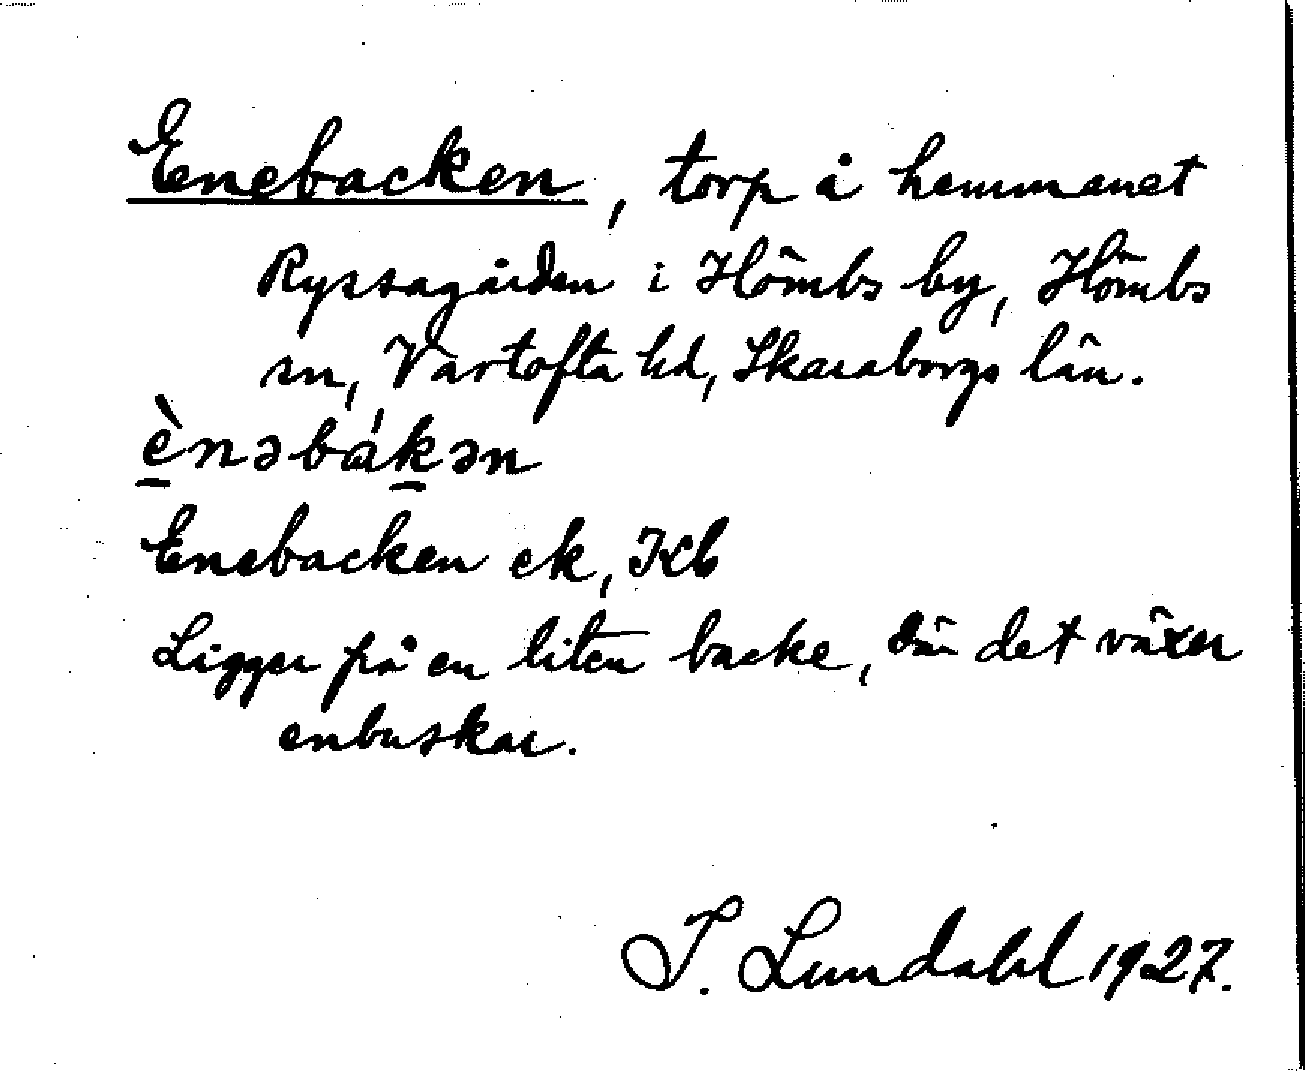 Enebacken, torp å hemmanet
Ryssagården i Hömbs by, Hömbs
sn, Vartofta hd, Skaraborgs län.
è̱nəbák̠ən
Enebacken ek, Kb
Ligger på en liten backe, där det växer
enbuskar.
I. Lundahl 1927.